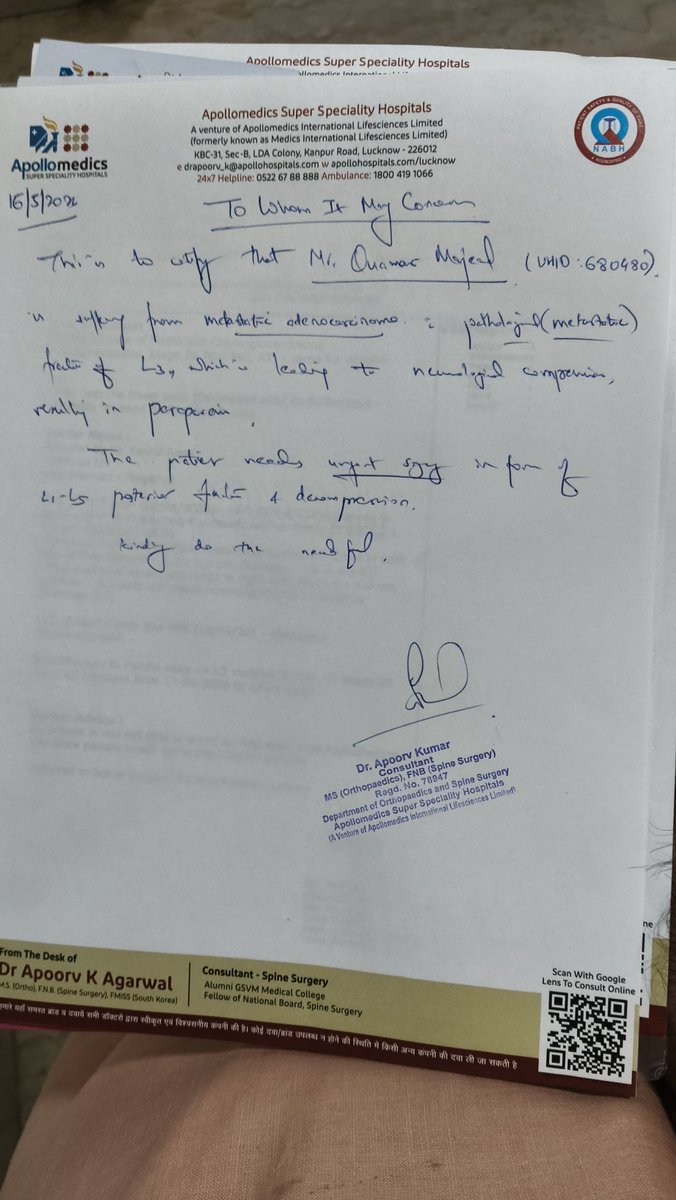 Apollomedics Super Speciality Hospitals
Apollomedics Super Speciality Hospitals
A venture of Apollomedics International Lifesciences Limited
(formerly known as Medics International Lifesciences Limited)
KBC-31, Sec-B, LDA Colony, Kanpur Road, Lucknow - 226012
e drapoorv_k@apollohospitals.com w apollohospitals.com/lucknow
24x7 Helpline: 0522 67 88 888 Ambulance: 1800 419 1066
Apollomedics
SUPER SPECIALITY HOSPITALS
PATIENT SAFETY & QUALITY OF CARE
NABH
ACCREDITED
16/5/2026
To Whom It May Concern
This is to certify that Mr. Quamar Majeed (UHID : 680480)
is suffering from metastatic adenocarcinoma pathological (metastatic)
of L3, which is leading to neurological compression,
resulting in paraparesis,
The patient needs urgent surgery in form of
L1-L5 posterior & decompression.
Kindly do the needful.
Dr. Apoorv Kumar
Consultant
MS (Orthopaedics), FNB (Spine Surgery)
Regd. No. 78947
Department of Orthopaedics and Spine Surgery
Apollomedics Super Speciality Hospitals
(A Venture of Apollomedics International Lifesciences Limited)
From The Desk of
Dr Apoorv K Agarwal
M.S. (Ortho), F.N.B. (Spine Surgery), FMISS (South Korea)
Consultant - Spine Surgery
Alumni GSVM Medical College
Fellow of National Board, Spine Surgery
Scan With Google
Lens To Consult Online
हमारे यहाँ समस्त ब्रांड व दवायें सभी डॉक्टरों द्वारा स्वीकृत एवं विश्वसनीय कंपनी की है। कोई दवा/ब्रांड उपलब्ध न होने की स्थिति में किसी अन्य कंपनी की दवा ली जा सकती है